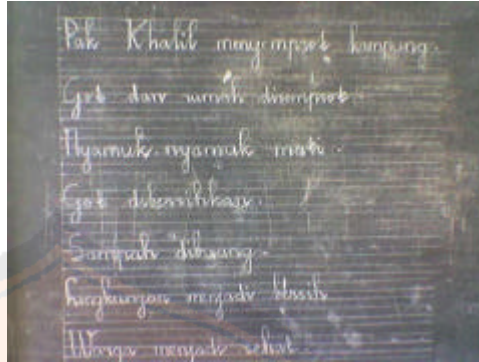 Pak Khalil menyemprot kampung.
Got dan rumah disemprot.
Nyamuk-nyamuk mati.
Got dibersihkan.
Sampah dibuang.
Lingkungan menjadi bersih
Warga menjadi sehat.